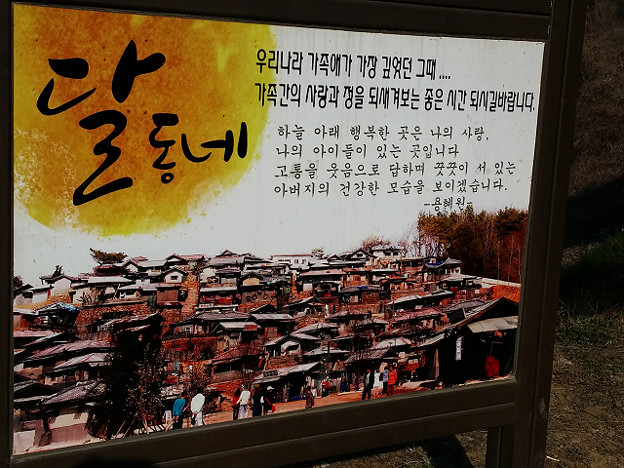 달동네
우리나라 가족애가 가장 깊었던 그때....
가족간의 사랑과 정을 되새겨보는 좋은 시간 되시길바랍니다.
하늘 아래 행복한 곳은 나의 사랑,
나의 아이들이 있는 곳입니다
고통을 웃음으로 답하며 꿋꿋이 서 있는
아버지의 건강한 모습을 보이겠습니다.
-용혜원-